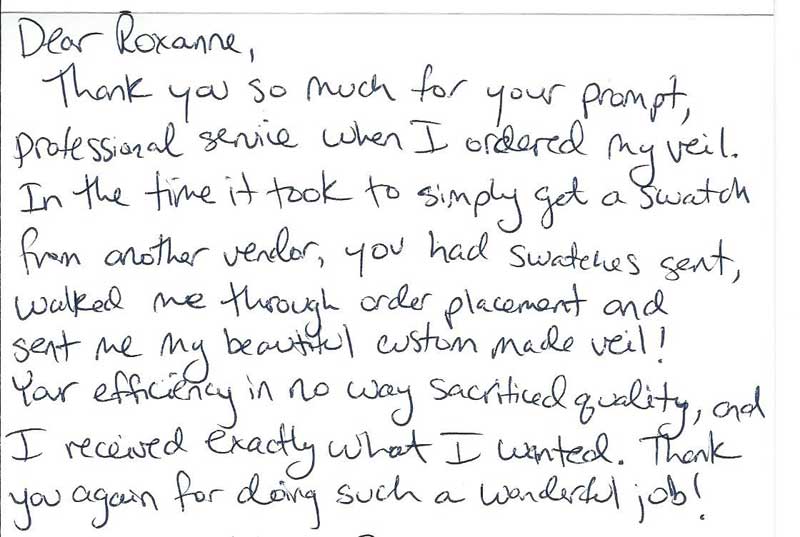 Dear Roxanne,
Thank you so much for your prompt,
professional service when I ordered my veil.
In the time it took to simply get a swatch
from another vendor, you had swatches sent,
walked me through order placement and
sent me my beautiful custom made veil!
Your efficiency in no way sacrificed quality, and
I received exactly what I wanted. Thank
you again for doing such a wonderful job!